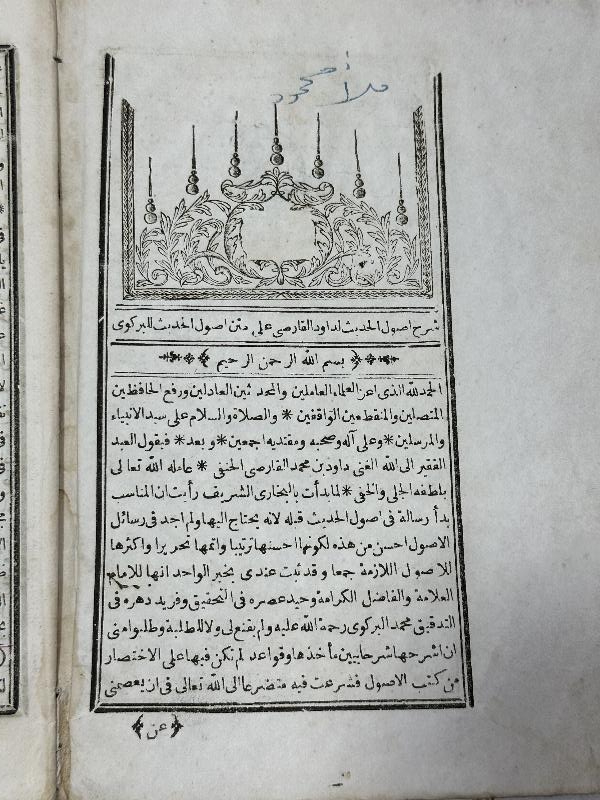 ملا محمود
شرح اصول الحديث لداود القارصى على متن اصول الحديث للبركوى
بسم الله الرحمن الرحيم
الحمد لله الذى اعز العلماء العاملين والمحدثين العادلين ورفع الحافظين
المتصلين والمنقطعين الواقفين * والصلاة والسلام على سيد الانبياء
والمرسلين * وعلى آله وصحبه ومقتديه اجمعين * وبعد * فيقول العبد
الفقير الى الله الغنى داود بن محمد القارصى الحنفى * عامله الله تعالى
بلطفه الجلى والخفى * لما بدأت بالبخارى الشريف رأيت ان المناسب
بدأ رسالة فى اصول الحديث قبله لانه يحتاج اليها ولم اجد فى رسائل
الاصول احسن من هذه لكونها احسنها ترتيبا واتمها تحريرا واكثرها
للاصول اللازمة جمعا وقد ثبت عندى بخبر الواحد انها للامام
العلامة والفاضل الكرامة وحيد عصره فى التحقيق وفريد دهره فى
التدقيق محمد البركوى رحمة الله عليه ولم يقنع لى ولا للطلبة وطلبوا منى
ان اشرحها شرحا يبين مأخذها وقواعد لم تكن فيها على الاختصار
من كتب الاصول فشرعت فيه متضرعا الى الله تعالى فى ان يعصمنى
عن